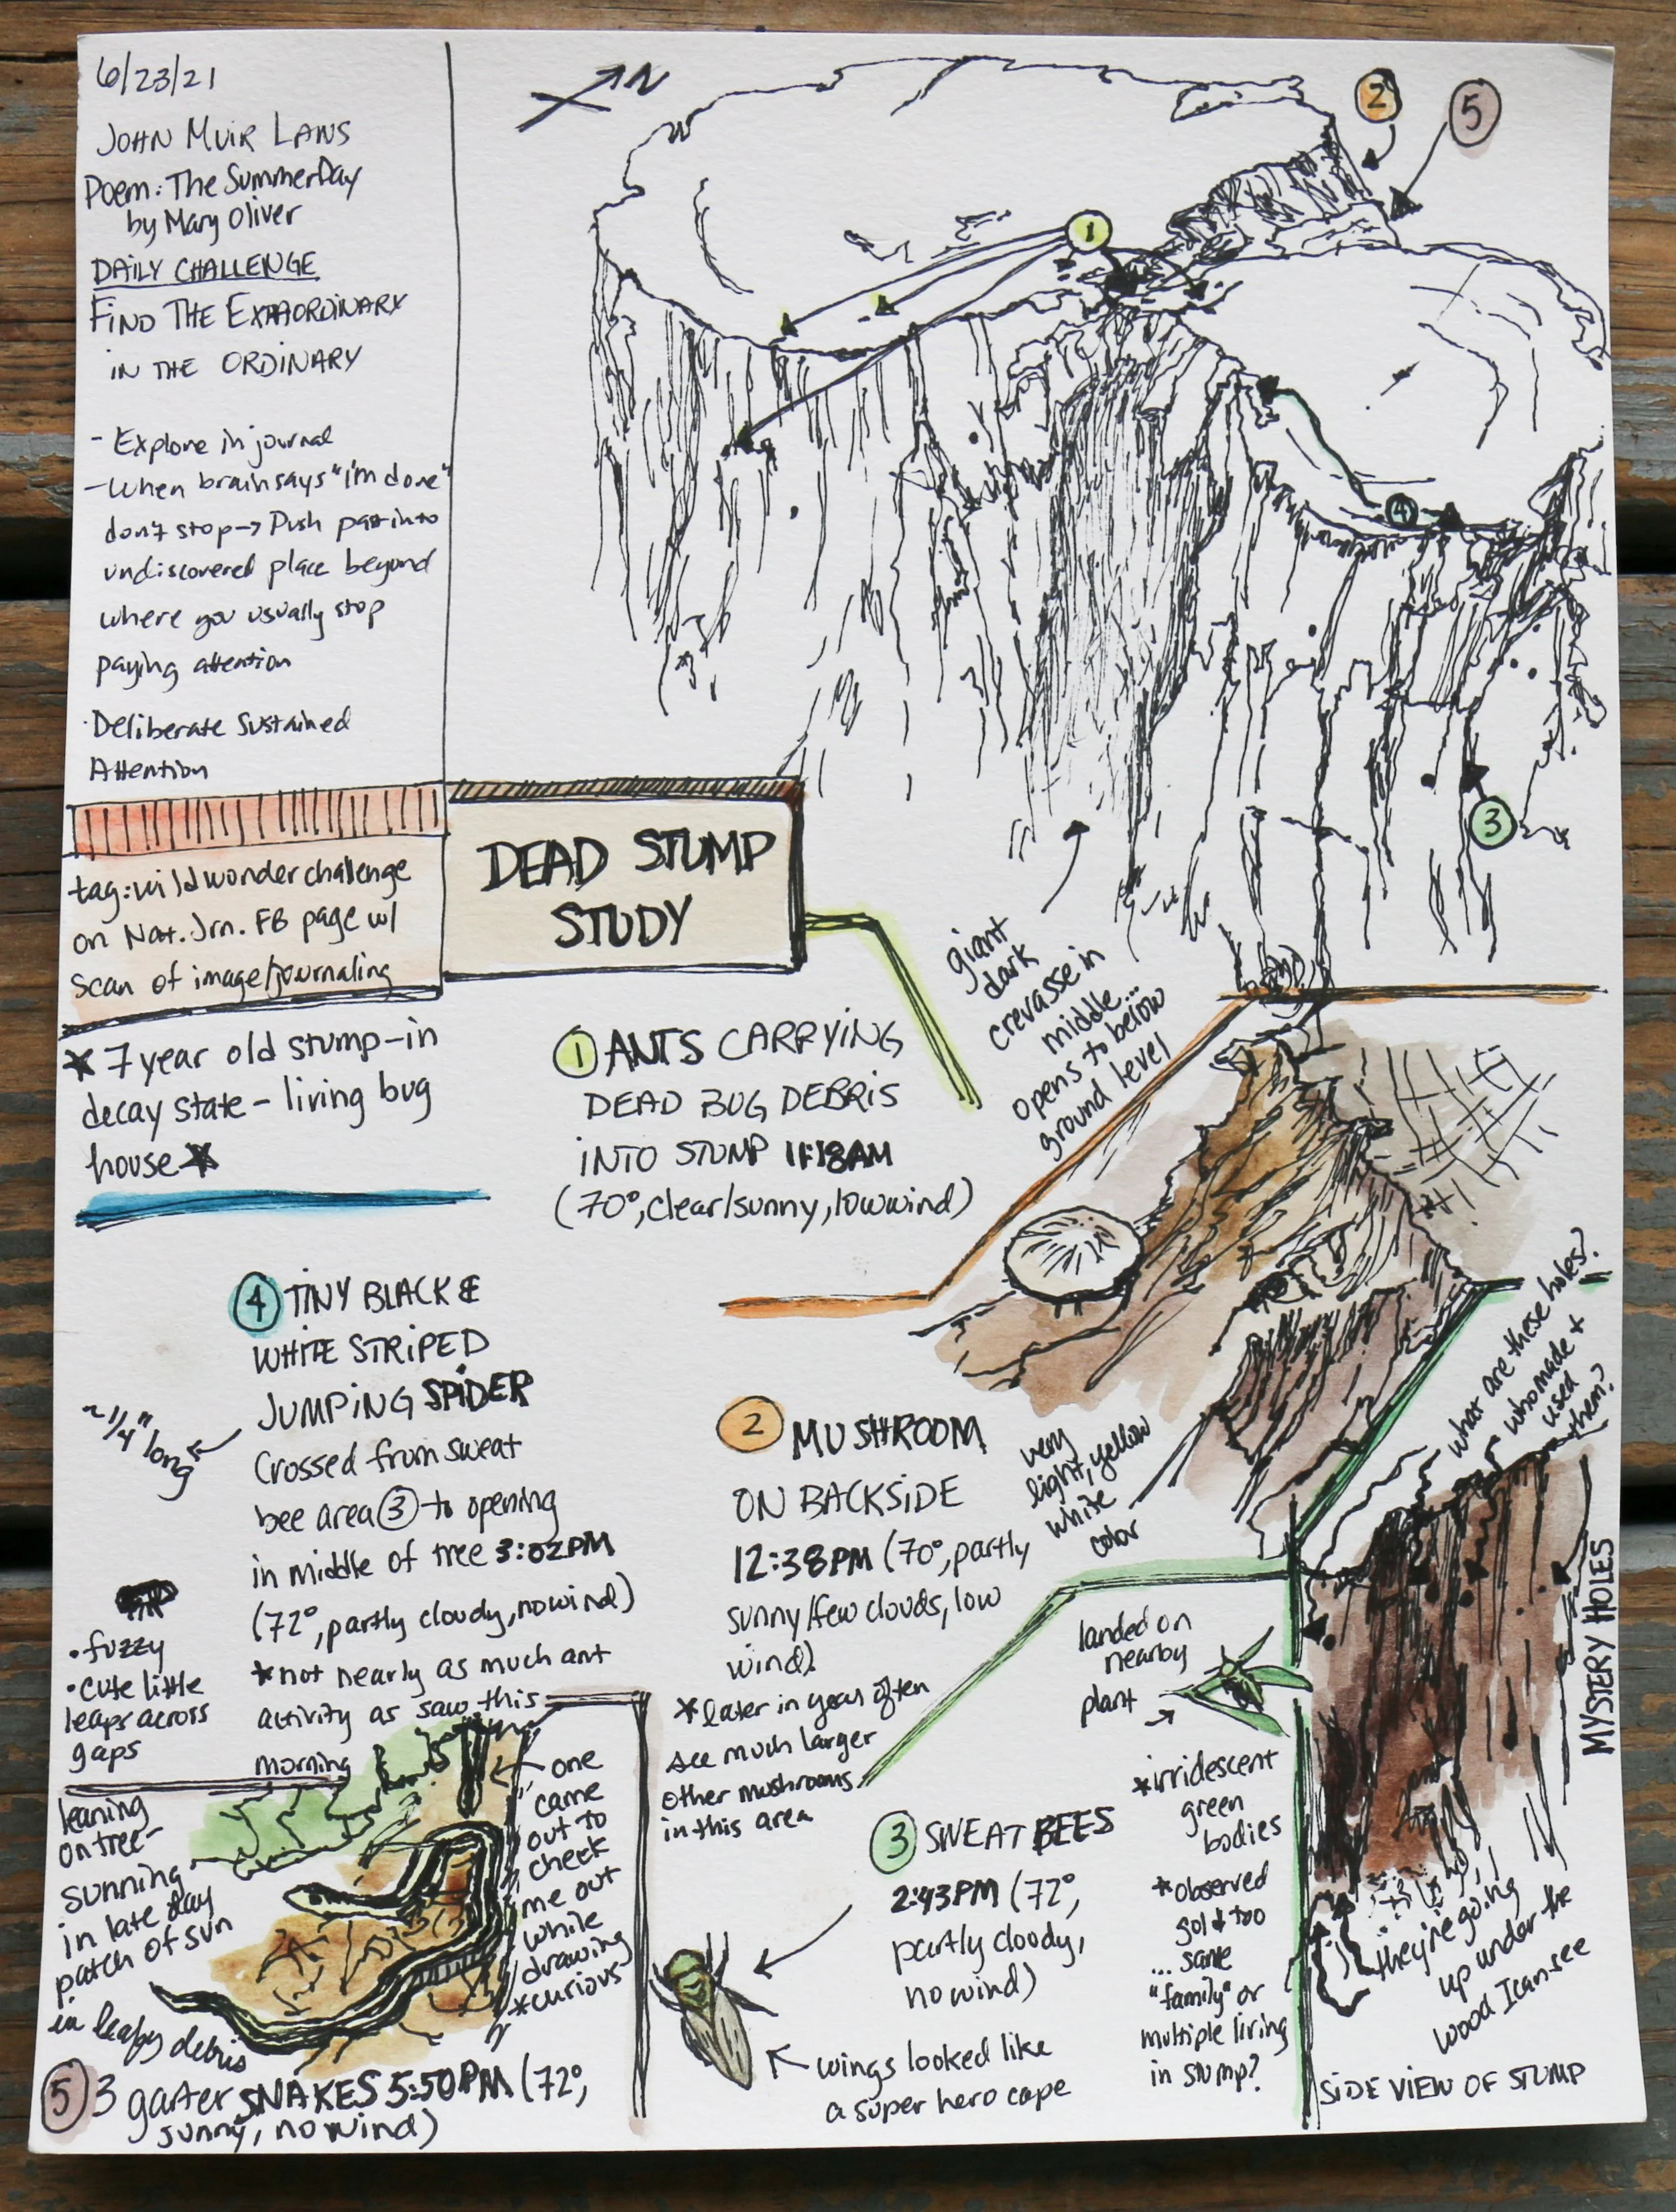 6/23/21
JOHN MUIR LAWS
Poem: The Summer Day
by Mary Oliver
DAILY CHALLENGE
FIND THE EXTRAORDINARY
IN THE ORDINARY
- Explore in journal
- When brain says "I'm done"
don't stop → Push past into
undiscovered place beyond
where you usually stop
paying attention
· Deliberate Sustained
Attention
tag: wildwonder challenge
on Nat. Jrn. FB page w/
scan of image/journaling
DEAD STUMP
STUDY
★ 7 year old stump - in
decay state - living bug
house ★
N
1
2
5
4
3
giant
dark
crevasse in
middle...
opens to below
ground level
① ANTS CARRYING
DEAD BUG DEBRIS
INTO STUMP 11:18AM
(70°, clear/sunny, low wind)
② MUSHROOM
ON BACKSIDE
12:38PM (70°, partly
sunny/few clouds, low
wind)
* later in year often
see much larger
other mushrooms
in this area
very
light, yellow
white
color
③ SWEAT BEES
2:43PM (72°,
partly cloudy,
no wind)
wings looked like
a super hero cape
landed on
nearby
plant
* irridescent
green
bodies
* observed
gold too
... same
"family" or
multiple living
in stump?
what are these holes?
or who made +
used
them?
MYSTERY HOLES
they're going
up under the
wood I can see
SIDE VIEW OF STUMP
④ TINY BLACK &
WHITE STRIPED
JUMPING SPIDER
Crossed from sweat
bee area ③ to opening
in middle of tree 3:02PM
(72°, partly cloudy, no wind)
* not nearly as much ant
activity as saw this
morning
~ 1/4" long
· fuzzy
· cute little
leaps across
gaps
leaning
on tree -
sunning
in late day
patch of sun
in leafy debris
one
came
out to
check
me out
while
drawing
* curious
⑤ 3 garter SNAKES 5:50PM (72°,
sunny, no wind)